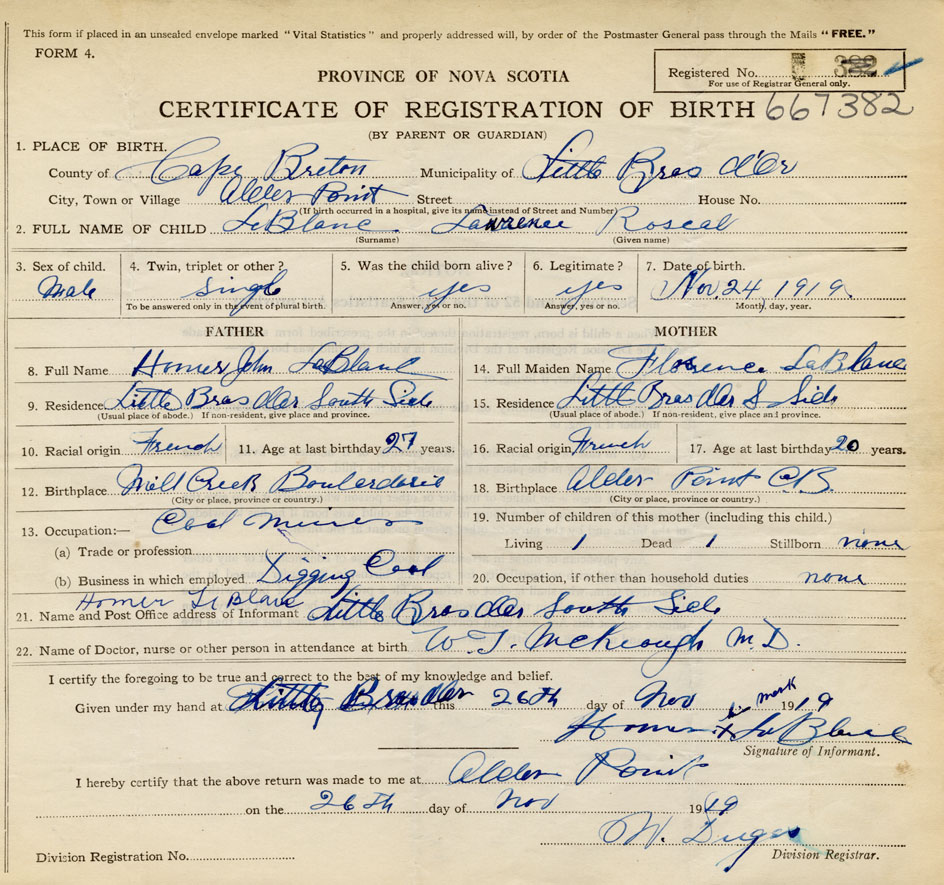 This form if placed in an unsealed envelope marked "Vital Statistics" and properly addressed will, by order of the Postmaster General pass through the Mails "FREE."
FORM 4.
Registered No.
For use of Registrar General only.
PROVINCE OF NOVA SCOTIA
CERTIFICATE OF REGISTRATION OF BIRTH 667382
(BY PARENT OR GUARDIAN)
1. PLACE OF BIRTH.
County of Cape Breton Municipality of Little Bras d'Or
City, Town or Village Alder Point Street House No.
(If birth occurred in a hospital, give its name instead of Street and Number)
2. FULL NAME OF CHILD LeBlanc Lawrence Roscal
(Surname) (Given name)
3. Sex of child. 4. Twin, triplet or other? 5. Was the child born alive? 6. Legitimate? 7. Date of birth.
Male single yes yes Nov 24 1919
To be answered only in the event of plural birth. Answer, yes or no. Answer, yes or no. Month, day, year.
FATHER MOTHER
8. Full Name Homer John LeBlanc 14. Full Maiden Name Florence LaBlanc
9. Residence Little Bras d'Or South Side 15. Residence Little Bras d'Or S Side
(Usual place of abode.) If non-resident, give place and province. (Usual place of abode.) If non-resident, give place and province.
10. Racial origin French 11. Age at last birthday 27 years. 16. Racial origin French 17. Age at last birthday 20 years.
12. Birthplace Mill Creek Boulardarie 18. Birthplace Alder Point C.B.
(City or place, province or country.) (City or place, province or country.)
13. Occupation:— Coal Miner 19. Number of children of this mother (including this child.)
(a) Trade or profession Living 1 Dead 1 Stillborn none
(b) Business in which employed Digging Coal 20. Occupation, if other than household duties none
Homer LeBlanc
21. Name and Post Office address of Informant Little Bras d'Or South Side
22. Name of Doctor, nurse or other person in attendance at birth W. J. McKeough M.D.
I certify the foregoing to be true and correct to the best of my knowledge and belief.
Given under my hand at Little Bras d'Or this 26th day of Nov 1919
Homer his x mark LeBlanc
Signature of Informant.
I hereby certify that the above return was made to me at Alder Point
on the 26th day of Nov 1919
W. Dugas
Division Registration No. Division Registrar.